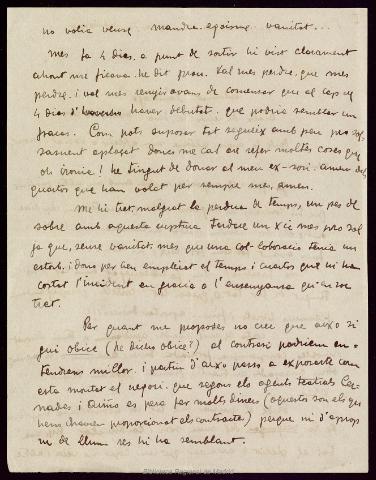 no volia veure, mandra, egoisme, vanitat...
Mes fa 4 dies, a punt de sortir hi vist clarament
ahont me ficava. he dit prou. Val mes perdre, que mes
perdre, i val mes renyir avans de comensar que al cap de
4 dies d' haver debutat, que podria semblar un
fracas. Com pots suposar tot segueix amb peu pro for-
sosament aplaçat doncs me cal are refer moltes coses que
oh ironia! he tingut de donar al meu ex-soci, amen dels
quartos que han volat per sempre mes, amen.
Me hi tret, malgrat la perdua de temps, un pes de
sobre amb aquesta ruptura. Tardare un xic mes pro sol
ja que, sense vanitat, mes que una col-laboracio tenia un
estorb, i dono per ben empleiat el temps i cuartos que m'han
costat l'incident en gracia a l'ensenyansa qu'he
tret.
Per quant me proposes no crec que aixo si
gui obice (he dicho obice?) al contrari podriem en-
tendrens millor. i partin d'aixo passo a exposarte com
esta montat el negoci. que segons els agents teatrals Ca-
nades i es pera fer molts diners (aquestos son els que
hem proporcionat els contractes) perque ni d'aprop
ni de lluny res hi ha semblant.
Biblioteca Regional de Madrid